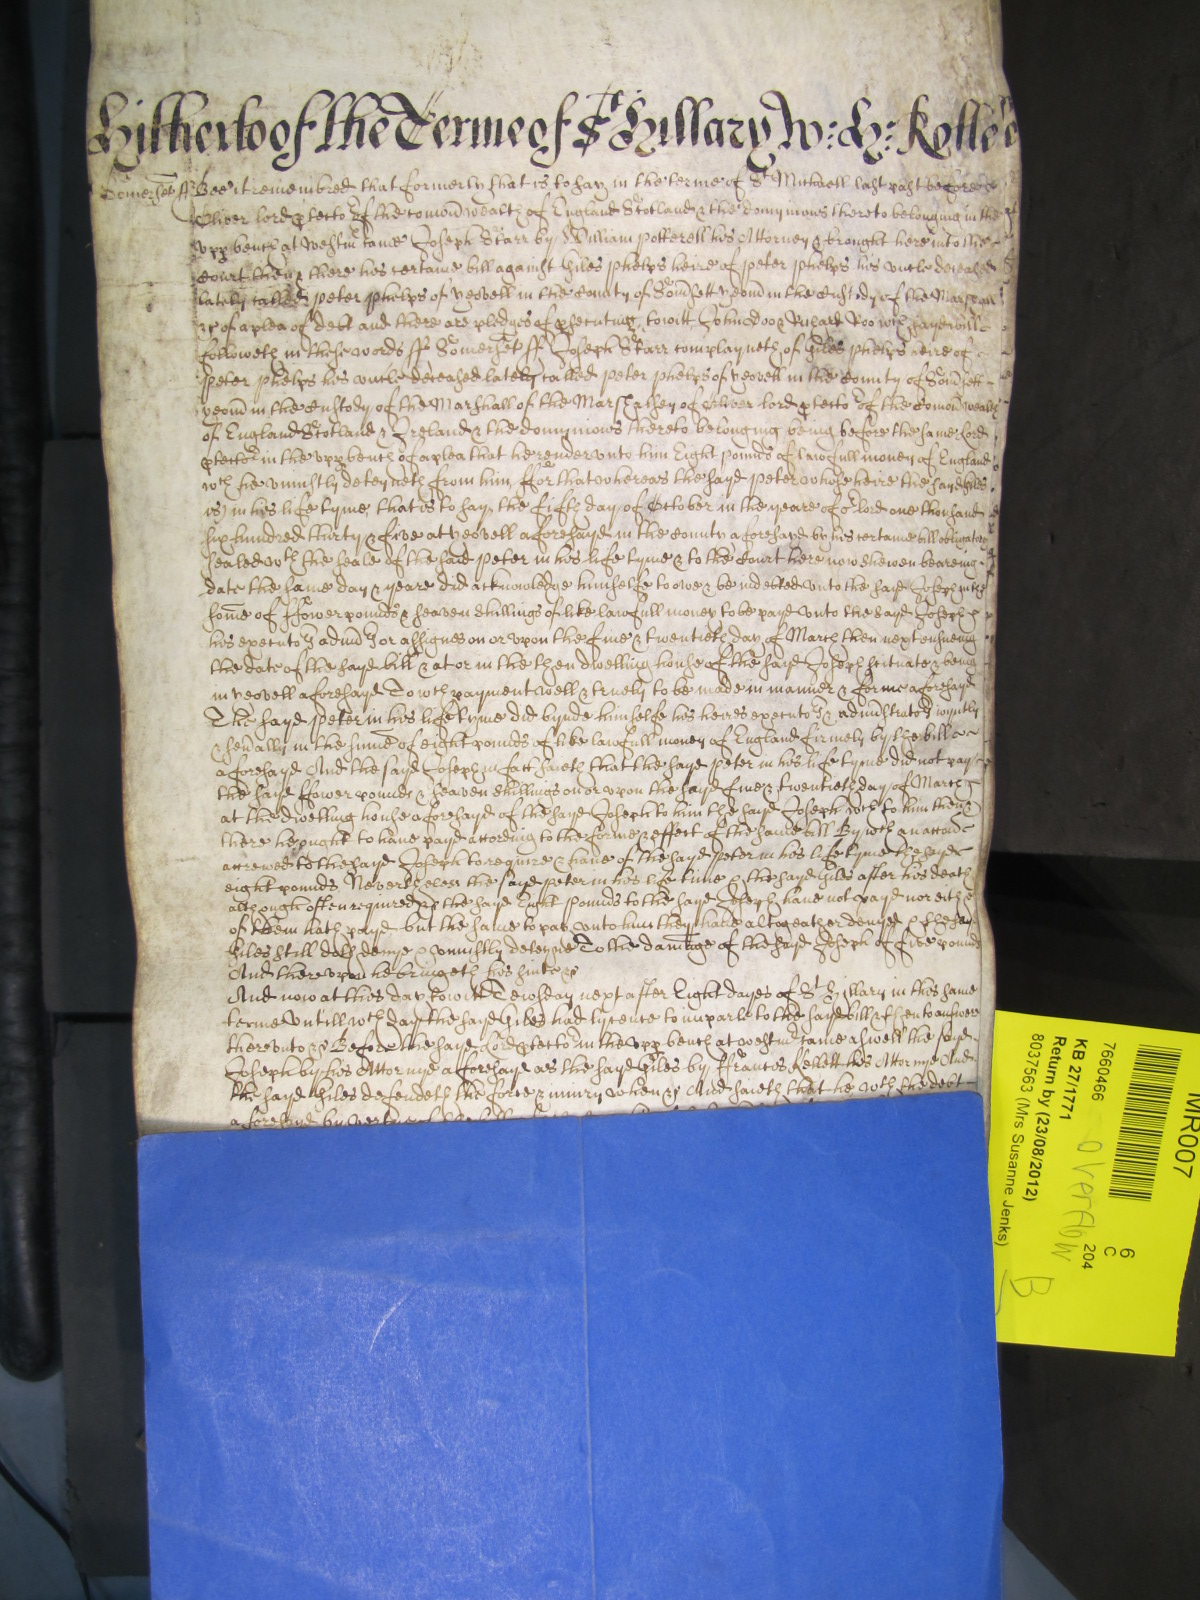 Hitherto of the Terme of St Hillary W: H: Rolle
Somerset ss Bee it remembred that formerly that is to say in the terme of St Michaell last past before
Oliver lord p'tector of the comonwealth of England Scotland & the dominions thereto belonging in the
upp bench at Westm' came Joseph Starr by William Potterell his Attorney & brought here into the
Court then & there his certaine bill against Giles Phelps heire of Peter Phelps his uncle deceased
lately called Peter Phelps of Yeovell in the County of Som'sett yeom' in the Custody of the Marshall
&c of a plea of debt and there are pledges of p'secuting, towitt John Doo & Richard Roo wch sayd bill
followeth in these words ss Somerset ss Joseph Starr complayneth of Giles Phelps heire of
Peter Phelps his uncle deceased lately called Peter Phelps of Yeovell in the County of Som'sett
yeom' in the Custody of the Marshall of the Marshalsey of Oliver lord p'tector of the Comonwealth
of England Scotland & Ireland & the dominions thereto belonging being before the same lord
p'tector in the upp bench of a plea that he render unto him Eight pounds of lawfull money of England
wch he uniustly deteyneth from him, ffor that whereas the sayd Peter whose heire the sayd Giles
is) in his life tyme, that is to say, the fifth day of October in the yeare of or lord one thousand
six hundred thirty & five at Yeovell aforesayd in the County aforesayd by his certaine bill obligatory
sealed wth the seale of the said Peter in his life tyme & to the Court here now shewen bearing
date the same day & yeare did acknowledge himselfe to owe & be indebted unto the sayd Joseph in the
some of ffower pounds & seaven shillings of like lawfull money to be payd unto the sayd Joseph
his executors adm' or assignes on or upon the five & twentieth day of March then next ensueing
the date of the sayd bill & at or in the then dwelling house of the sayd Joseph scituate & being
in Yeovell aforesayd To wch payment well & truely to be made in manner & forme aforesayd
The sayd Peter in his life tyme did bynde himselfe his heires executors & administrators ioyntly
& sev'ally in the summe of eight pounds of like lawfull money of England firmely by the bill
aforesayd And the sayd Joseph in fact saieth that the sayd Peter in his life tyme did not pay
the sayd ffower pounds & seaven shillings on or upon the sayd five & twentieth day of March
at the dwelling house aforesayd of the sayd Joseph to him the sayd Joseph wch to him then &
there he ought to have payd according to the forme & effect of the same bill By wch an accon
accrewed to the sayd Joseph to require & have of the sayd Peter in his life tyme the sayd
eight pounds Neverthelesse the sayd Peter in his life time & the sayd Giles after his death
although often required &c the sayd Eight pounds to the sayd Joseph have not payd nor either
of them hath payd but the same to pay unto him they have altogeather denyed & the sayd
Giles still doth denye & uniustly deteyne To the damage of the sayd Joseph of five pounds
And thereupon he bringeth his suite &c
And now at this day towitt Tewsday next after Eight dayes of St Hillary in this same
terme Untill wch day the sayd Giles had lycence to imparle to the sayd bill & then to answere
thereunto &c Before the sayd Lord p'tector in the upp bench at westm' came aswell the sayd
Joseph by his Attorney aforesayd as the sayd Giles by ffrancis Kellett his Attorney And
the sayd Giles defendeth the force & iniury when &c And saieth that he wth the debt
aforesayd by vertue
MR007
7660466
6
C
204
KB 27/1771
Return by (23/08/2012)
8037563 (Mrs Susanne Jenks)
overflow
B